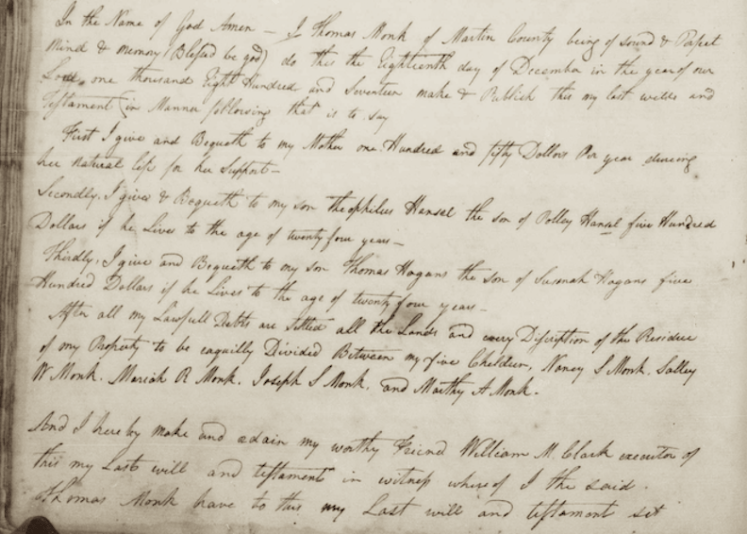 In the Name of God Amen — I Thomas Monk of Martin County being of sound & Perfect
Mind & Memory (Blessed be god) do this the Eighteenth day of December in the year of our
Lord one thousand Eight Hundred and Seventeen make & Publish this my last wills and
Testament in Manner following that is to say
First I give and Bequeath to my Mother one Hundred and fifty Dollars Per year dureing
her natural life for her Support —
Secondly, I give & Bequeath to my son theophilus Hansel the son of Polley Hansel five Hundred
Dollars if he Lives to the age of twenty four years —
Thirdly, I give and Bequeath to my son Thomas Hogans the son of Susanah Hogans five
Hundred Dollars if he Lives to the age of twenty four years —
After all my Lawfull Debts are Settled all the Lands and every Discription of the Residue
of my Property to be equilly Divided Between my five Children, Nancy S Monk. Salley
W Monk. Mariah R Monk. Joseph S Monk. and Marthy A Monk.
And I hereby make and odain my worthy Friend William M. Clark executor of
this my Last will and testament in witness whereof I the said.
Thomas Monk have to this my Last will and testament set